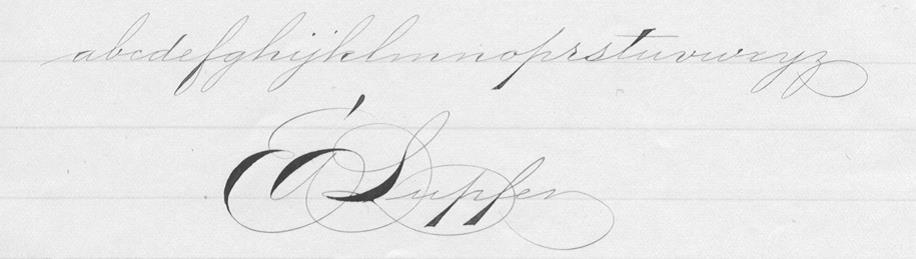 abcdefghijklmnoprstuvwxyz
EA Lupfer